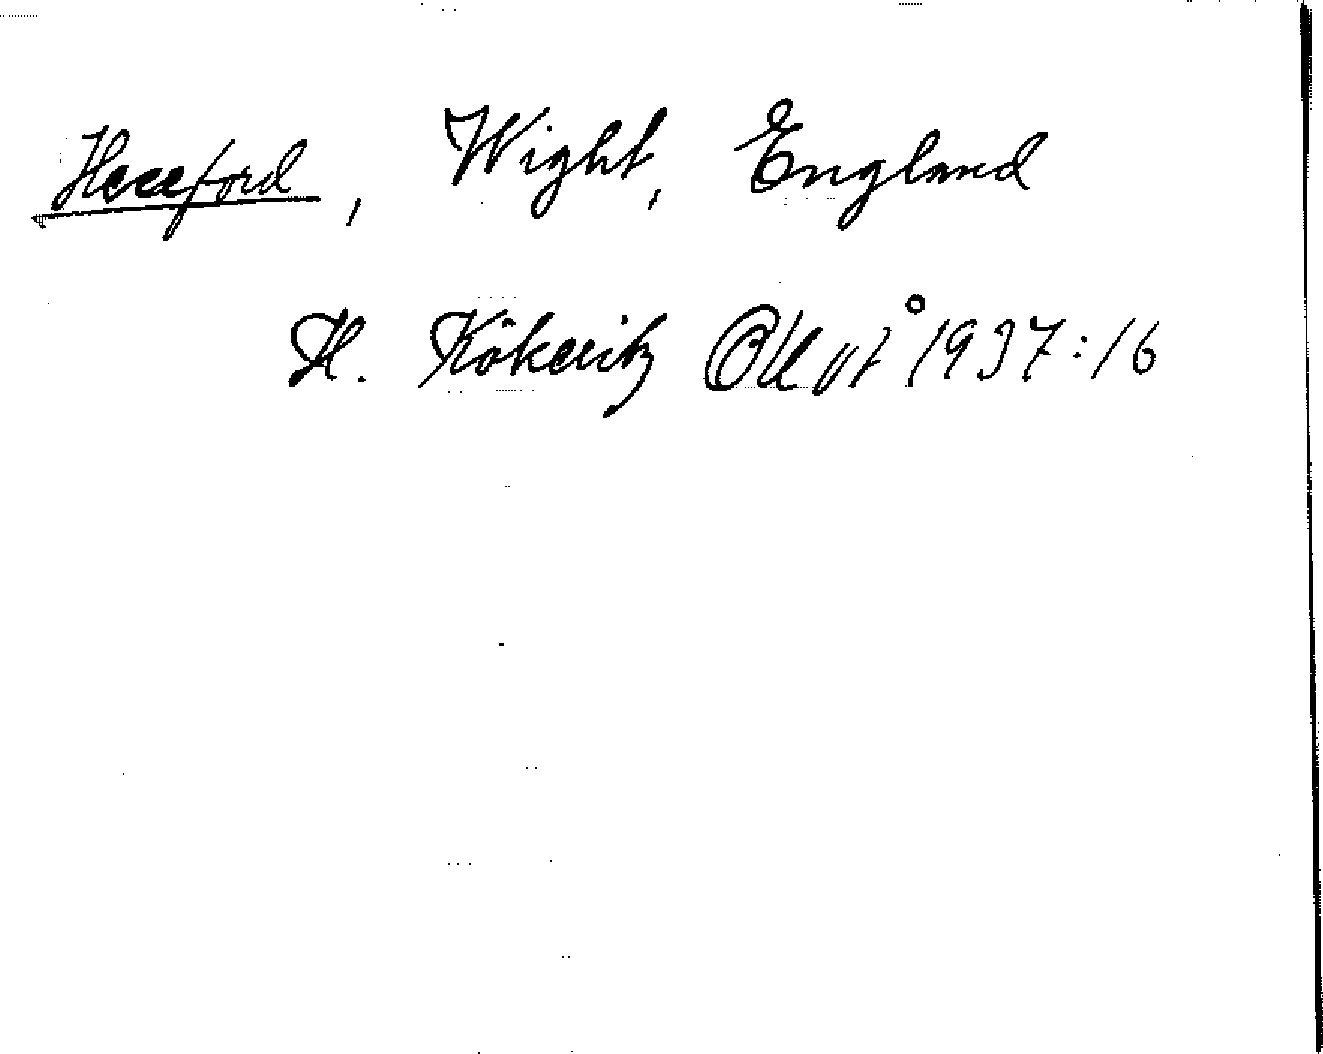 Hereford, Wight, England
H. Kökeritz OUÅ 1937:16